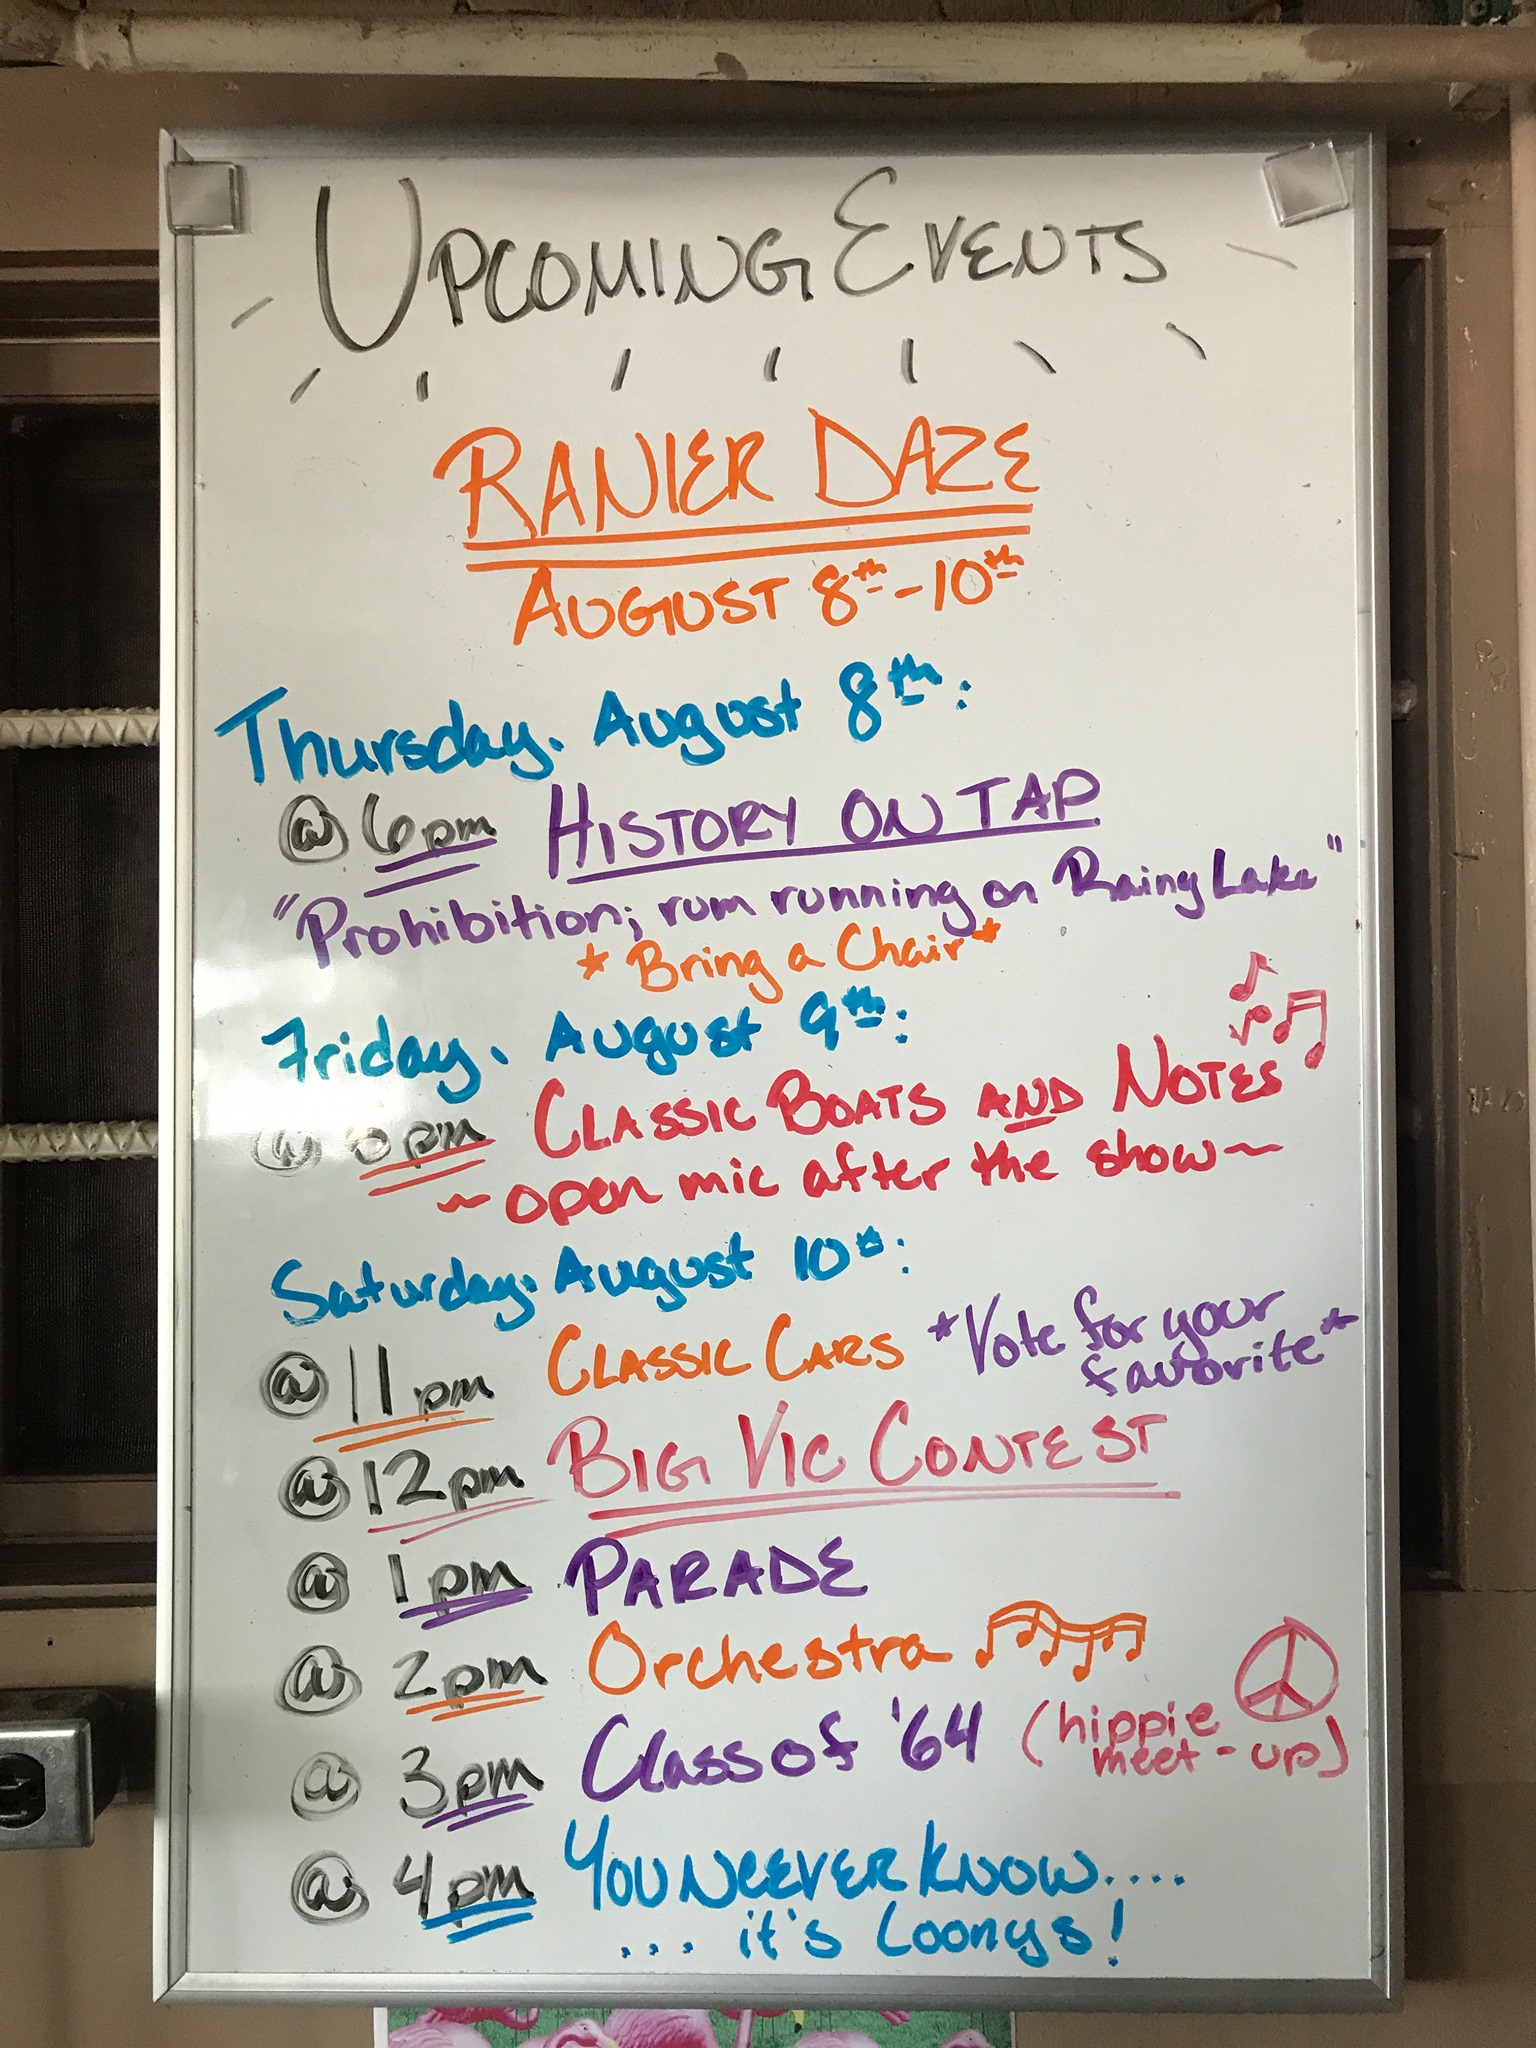 UPCOMING EVENTS
RANIER DAZE
AUGUST 8th-10th
Thursday. August 8th:
@ 6pm HISTORY ON TAP
"Prohibition; rum running on Rainy Lake"
* Bring a Chair *
Friday. August 9th:
@ pm CLASSIC BOATS AND NOTES
~ open mic after the show ~
Saturday. August 10th:
@ 11pm CLASSIC CARS *Vote for your
favorite*
@ 12pm BIG VIC CONTEST
@ 1pm PARADE
@ 2pm Orchestra
@ 3pm Class of '64 (hippie
meet-up)
@ 4pm YOU NEEVER KNOW....
... it's Loonys!